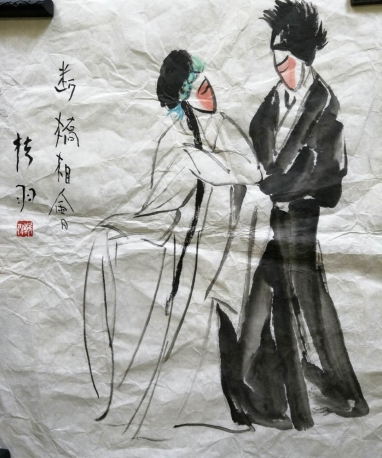 断橋相會
羽